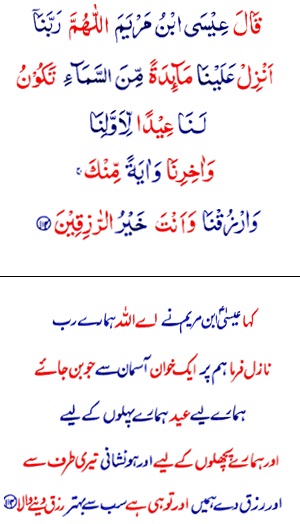 قَالَ عِيْسَى ابْنُ مَرْيَمَ اللّٰهُمَّ رَبَّنَاۤ
اَنْزِلْ عَلَيْنَا مَآئِدَةً مِّنَ السَّمَآءِ تَكُوْنُ
لَنَا عِيْدًا لِّاَوَّلِنَا
وَاٰخِرِنَا وَاٰيَةً مِّنْكَ ۚ
وَارْزُقْنَا وَاَنْتَ خَيْرُ الرّٰزِقِيْنَ ﴿۱۱۴﴾
کہا عیسیٰؑ ابن مریم نے اے اللہ ہمارے رب
نازل فرما ہم پر ایک خوان آسمان سے جو بن جائے
ہمارے لیے عید ہمارے پہلوں کے لیے
اور ہمارے پچھلوں کے لیے اور ہو نشانی تیری طرف سے
اور رزق دے ہمیں اور تو ہی ہے سب سے بہتر رزق دینے والا ﴿۱۱۴﴾